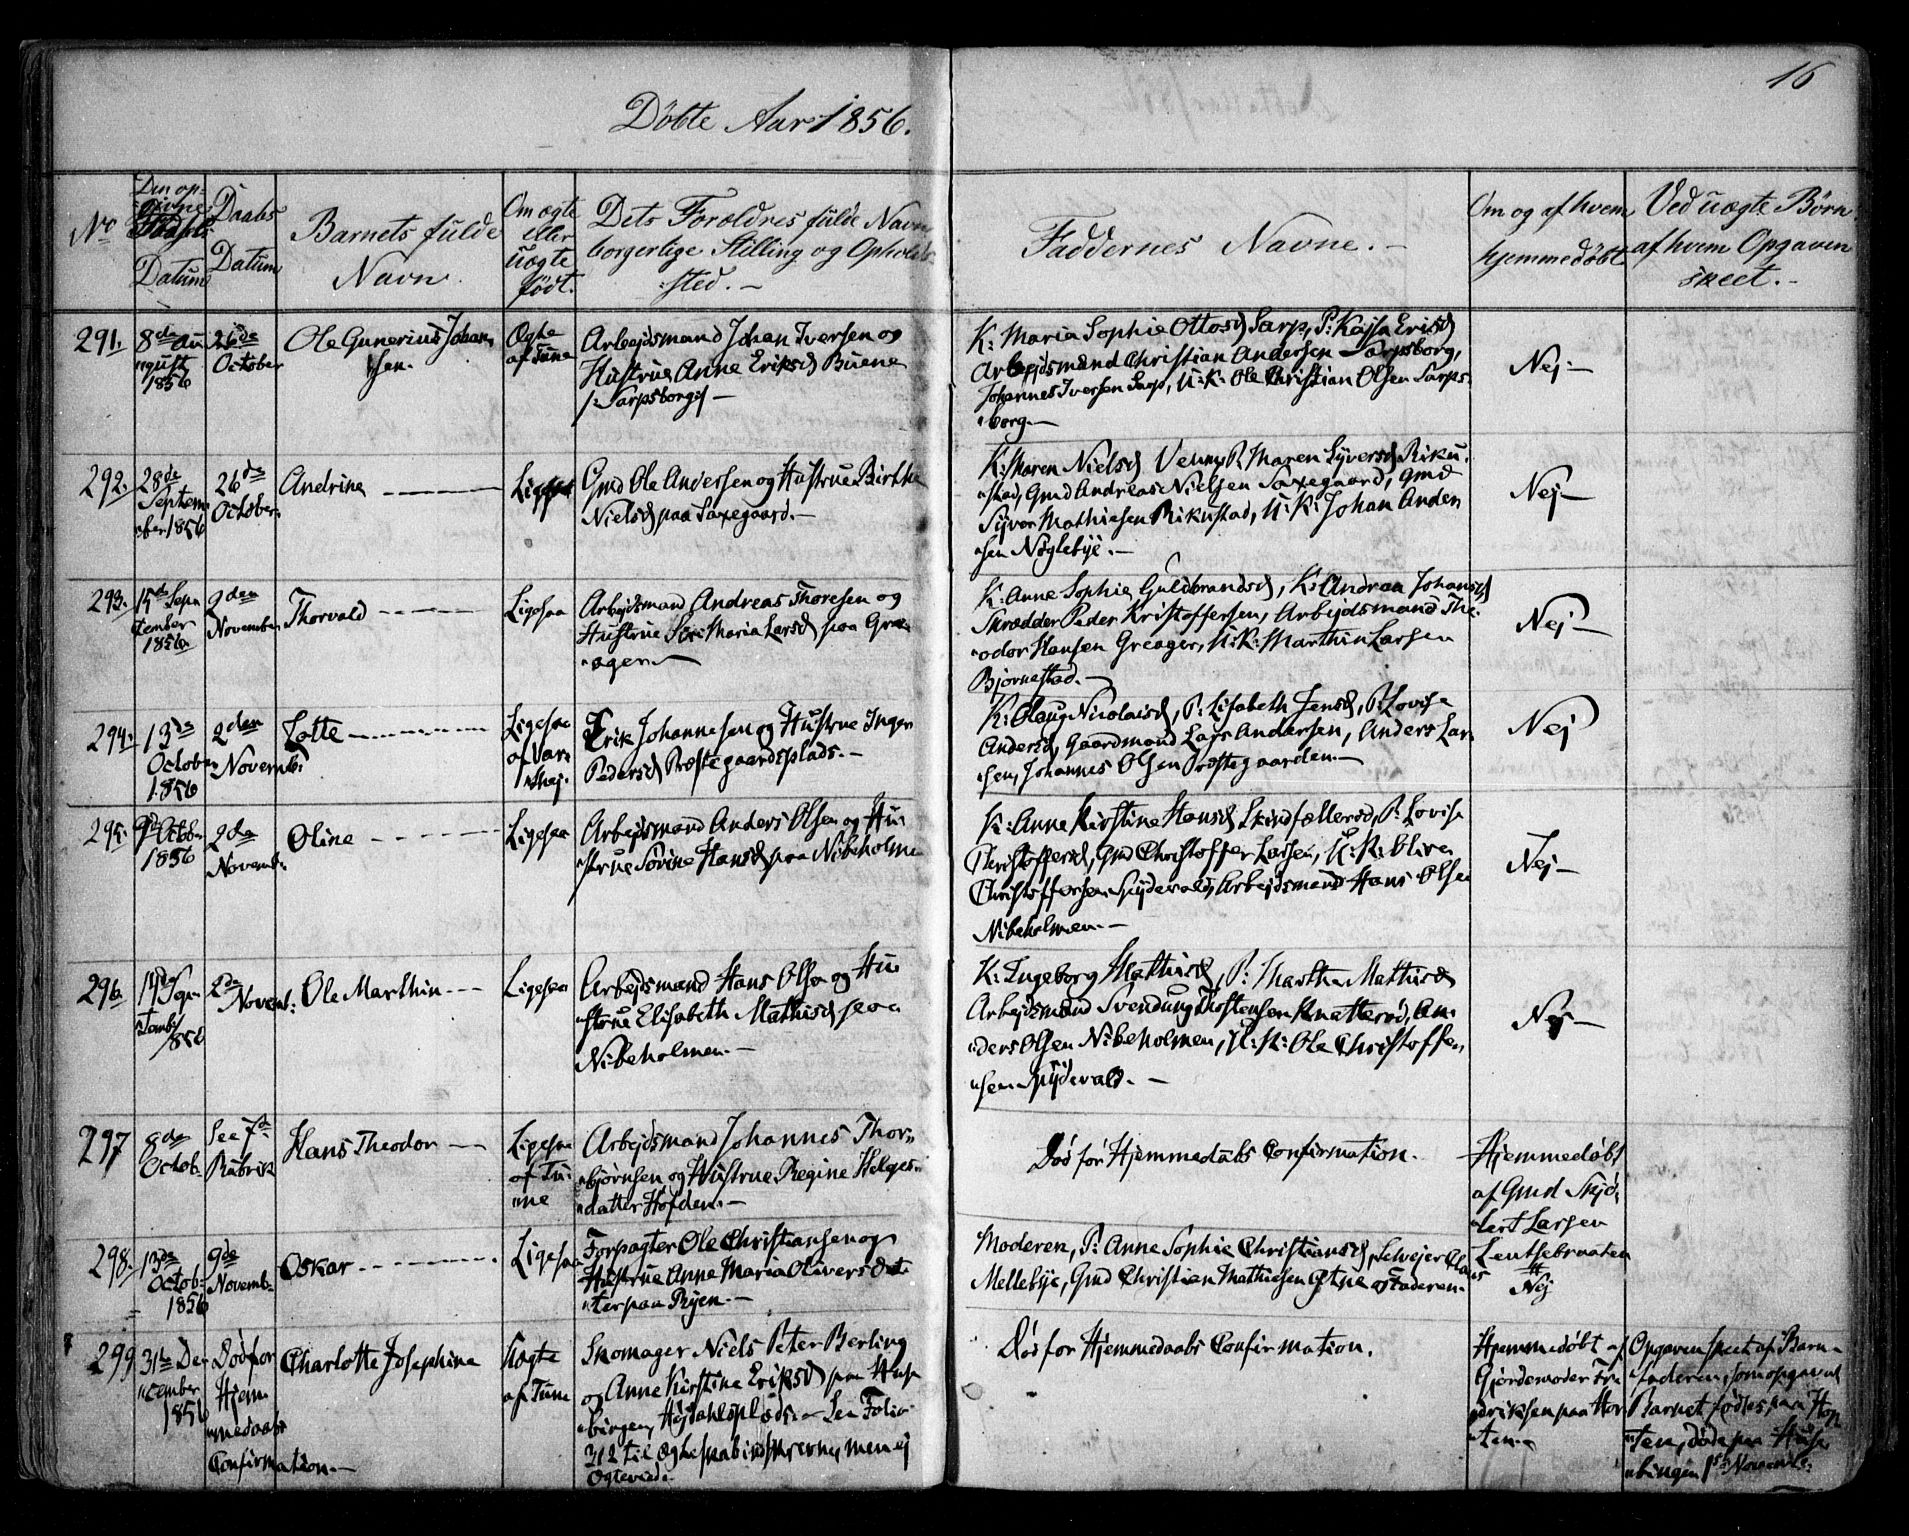 16
Döbte Aar 1856.
No
Den op-
givne
Datum
Daabs
Datum
Barnets fulde
Navn.
Om ægte
eller
uægte
født.
Dets Forældres fulde Navn
borgerlige Stilling og Opholds
sted. —
Faddernes Navne. —
Om og af hvem
hjemmedöbt
Ved uægte Börn
af hvem Opgaven
skeet. —
291.
8de Au
"gust
1856
26de
October
Ole Gunerius Johan
"sen.
Ægte
af Tune
Arbejdsmand Johan Iversen og
Hustrue Anne Eriksd Buene
/: Sarpsborg :/ —
K: Maria Sophie Ottosd Sarp, P: Kajsa Eriksd
Arbejdsmand Christian Andersen Sarpsborg,
Johannes Iversen Sarp, U: K: Ole Christian Olsen Sarps
"borg. —
Nej —
292.
28de
Septem
"ber 1856
26de
October.
Andrine
Ligesaa
Gmd Ole Andersen og Hustrue Birthe
Nielsd paa Saxegaard. —
K: Maren Nielsd Venny P. Maren Syversd Riku
"stad, Gmd Andreas Nielsen Saxegaard, Gmd
Syver Mathiesen Rikustad, U: K: Johan Ander
"sen Nöglebye. —
Nej —
293.
15de Sep
tember
1856
2den
November
Thorvald
Ligesaa
Arbejdsmand Andreas Thoresen og
Hustrue Maria Larsd paa Gre
"ager —
K: Anne Sophie Guldbrandsd, K: Andrea Johansd,
Skrædder Peder Kristoffersen, Arbejdsmand The
"odor Hansen Greager, U: K: Marthin Larsen
Bjørnestad. —
Nej —
294.
13de
October
1856
2den
Novemb:
Lotte
Ligesaa
af Var
"teig.
Erik Johannesen og Hustrue Inger
Pedersd Præstegaardsplads. —
K: Olaug Nicolaisd, P: Lisabeth Jensd, P: Lovise
Andersd, Gaardmand Lars Andersen, Anders Lar
"sen, Johannes Olsen Præstegaarden. —
Nej
295.
9de Octob:
1856
2de
Novemb:
Oline
Ligesaa
Arbejdsmand Anders Olsen og Hu
"strue Sörine Hansd paa Nibeholme
K: Anne Kirstine Hansd Skindfælleröd, P: Lovise
Christoffersd, Gmd Christoffer Larsen, U: K: Oliver
Christoffersen Spydevold, Arbejdsmand Hans Olsen
Nibeholmen. —
Nej —
296.
14de Sep
"temb/
1856
2de
Novemb:
Ole Marthin
Ligesaa
Arbejdsmand Hans Olsen og Hu
"strue Elisabeth Mathisd paa
Nibeholmen. —
K: Ingeborg Mathisd, P: Martha Mathisd
Arbejdsmand Svendung Thostensen Knatteröd, An
"ders Olsen Nibeholmen, U: K: Ole Christoffer
"sen Spydevold. —
Nej —
297
8de
Octob.
See 7de
Rubrik
Hans Theodor
Ligesaa
af Tu
"ne
Arbejdsmand Johannes Thor
"björnsen og Hustrue Regine Helges
"datter Hofden. —
Död för Hjemmedaabs Confirmation.
Hjemmedöbt
af Gmd
"lert Larsen
298.
13de
Octob:
1856
9de
Novemb.
Oskar
Ligesaa
Forpagter Ole Christiansen og
Hustrue Anne Maria Olivers dat
"ter paa Ryen. —
Moderen, P: Anne Sophie Christiansd, Selvejer Claus
Mellebye, Gmd Christian Mathiesen Gtne Faderen.
Nej
299
31te De
"cember
1856
Död för
Hjem
"medaabs
Confirmation. —
Charlotte Josephine
Uægte
af Tune
Skomager Niels Peter Berling
og Anne Kirstine Eriksd paa Huse
"bingen Hejdahlsplads — See Folio
312 til men ej
Ægtevied.
Död för Hjemmedaabs Confirmation.
Hjemmedöbt af
Gjordemoder Fre
"driksen paa Hor
"ten. —
Opgaven skeet af Barn
"faderen, som opgav at
Barnet födtes paa Hor
"ten, döde paa Huse
"bingen 1ste Novemb: